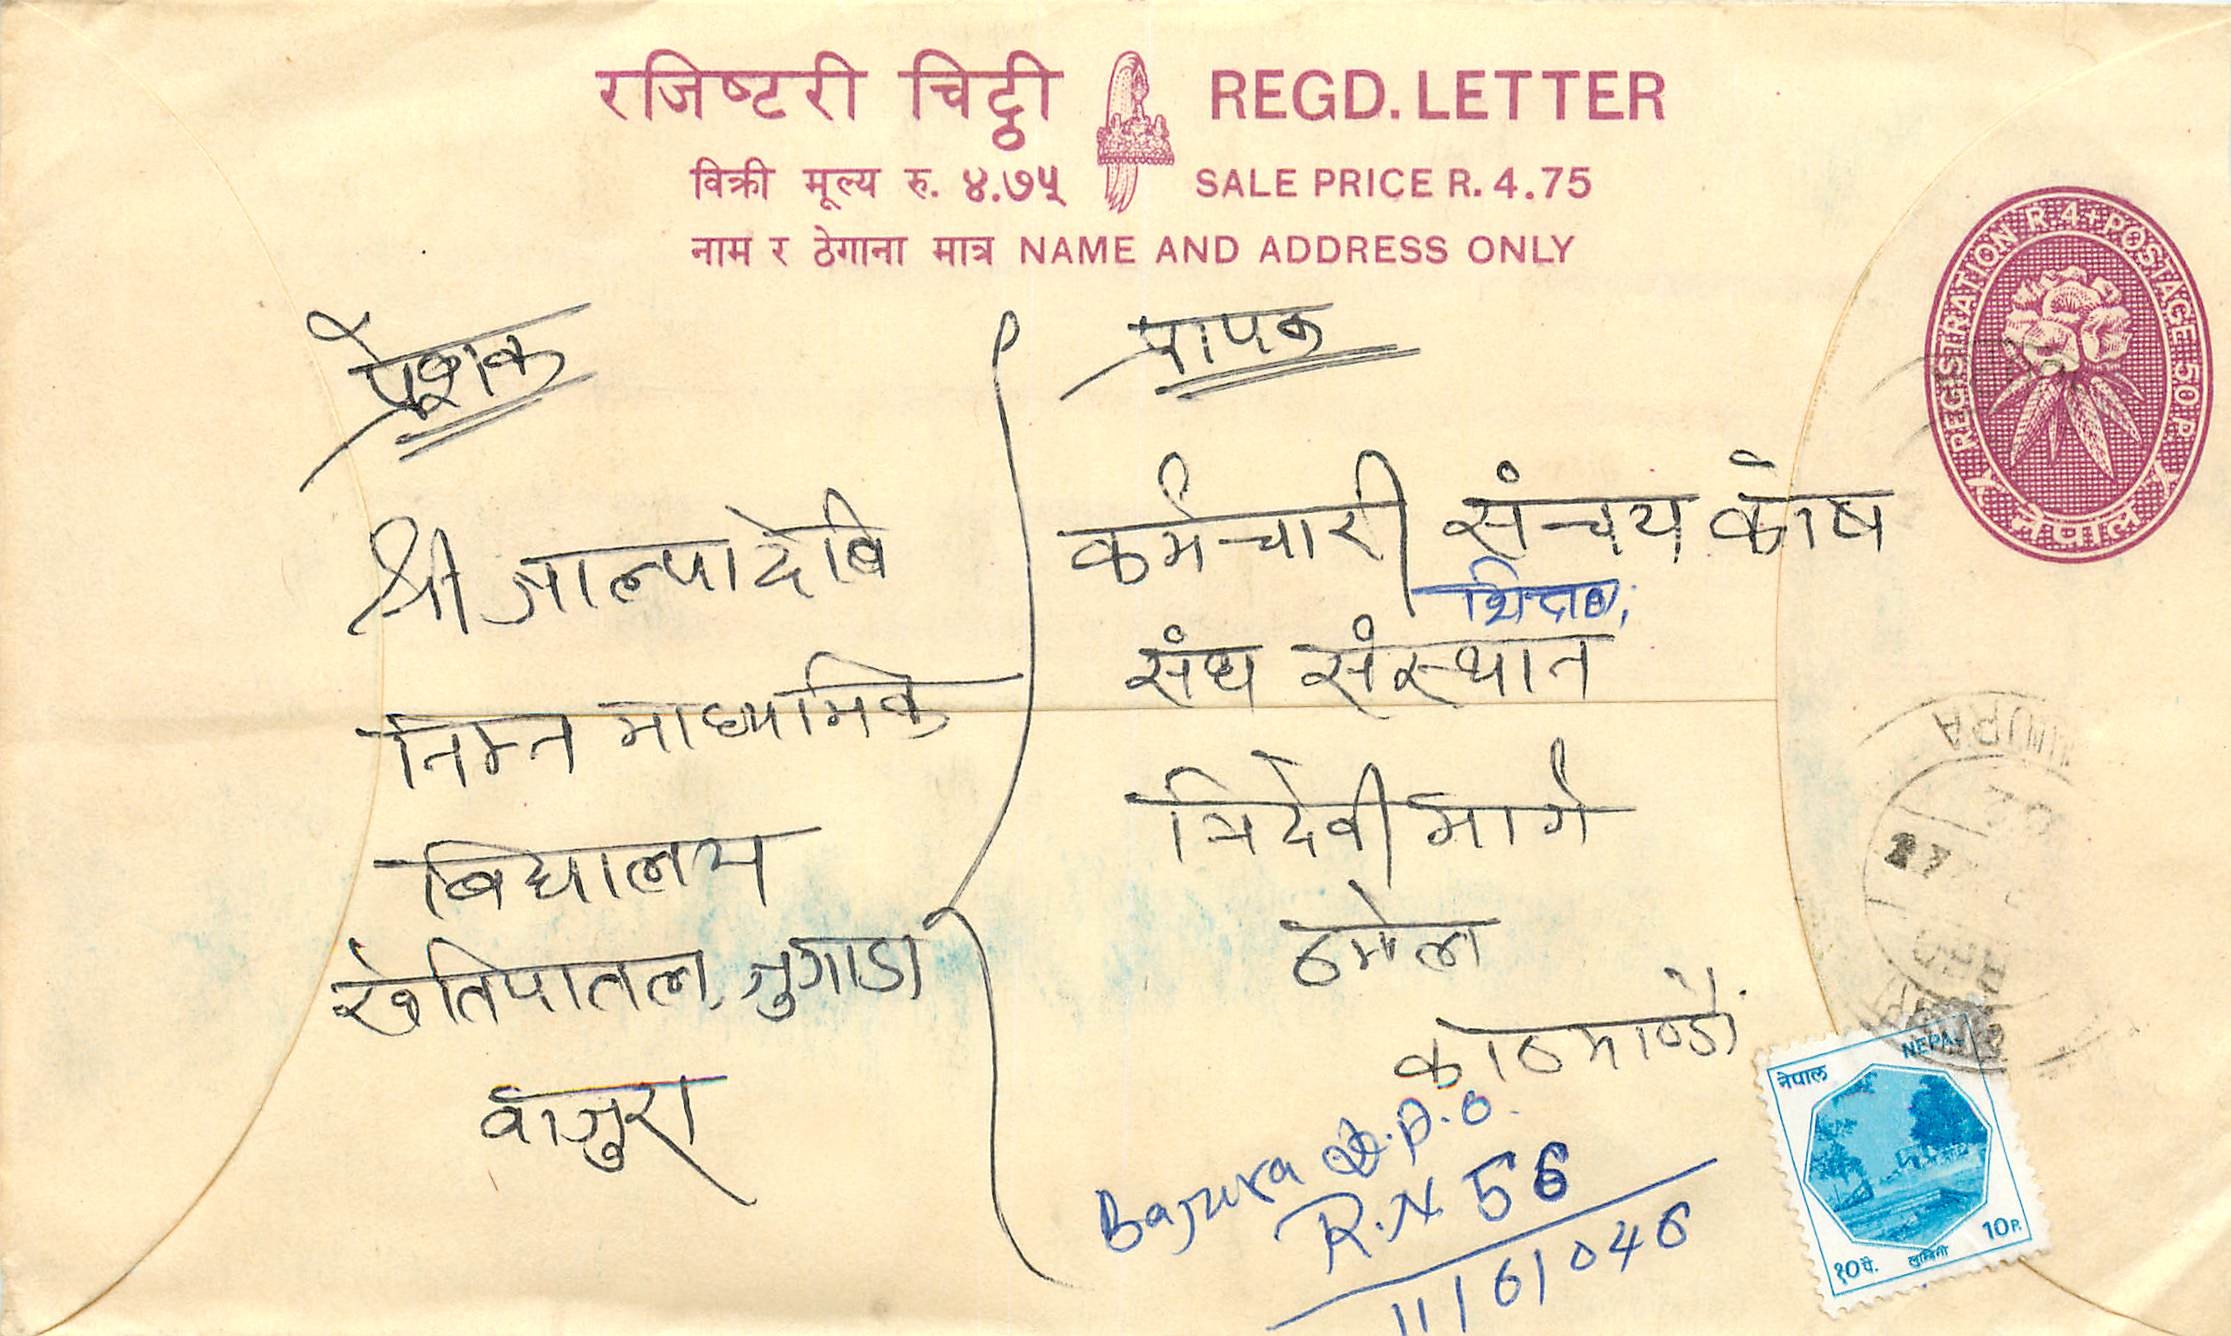 रजिष्टरी चिट्ठी REGD. LETTER
विक्री मूल्य रु. ४.७५ SALE PRICE R. 4.75
नाम र ठेगाना मात्र NAME AND ADDRESS ONLY
REGISTRATION R. 4 + POSTAGE 50 P.
नेपाल
प्रेशक
श्री जाल्पादेबि
निम्न माध्यामिक
बिद्यालय
खेतिपातल जुगाडा
वाजुरा
प्रापक
कर्मचारी संचय कोष
शिक्षक
संघ संस्थान
त्रिदेवी मार्ग
ठमेल
काठमाण्डौ
Bajura D.P.O.
R.N 56
11/6/046
JURA
27
नेपाल NEPAL
१० पै. लुम्बिनी 10 P.